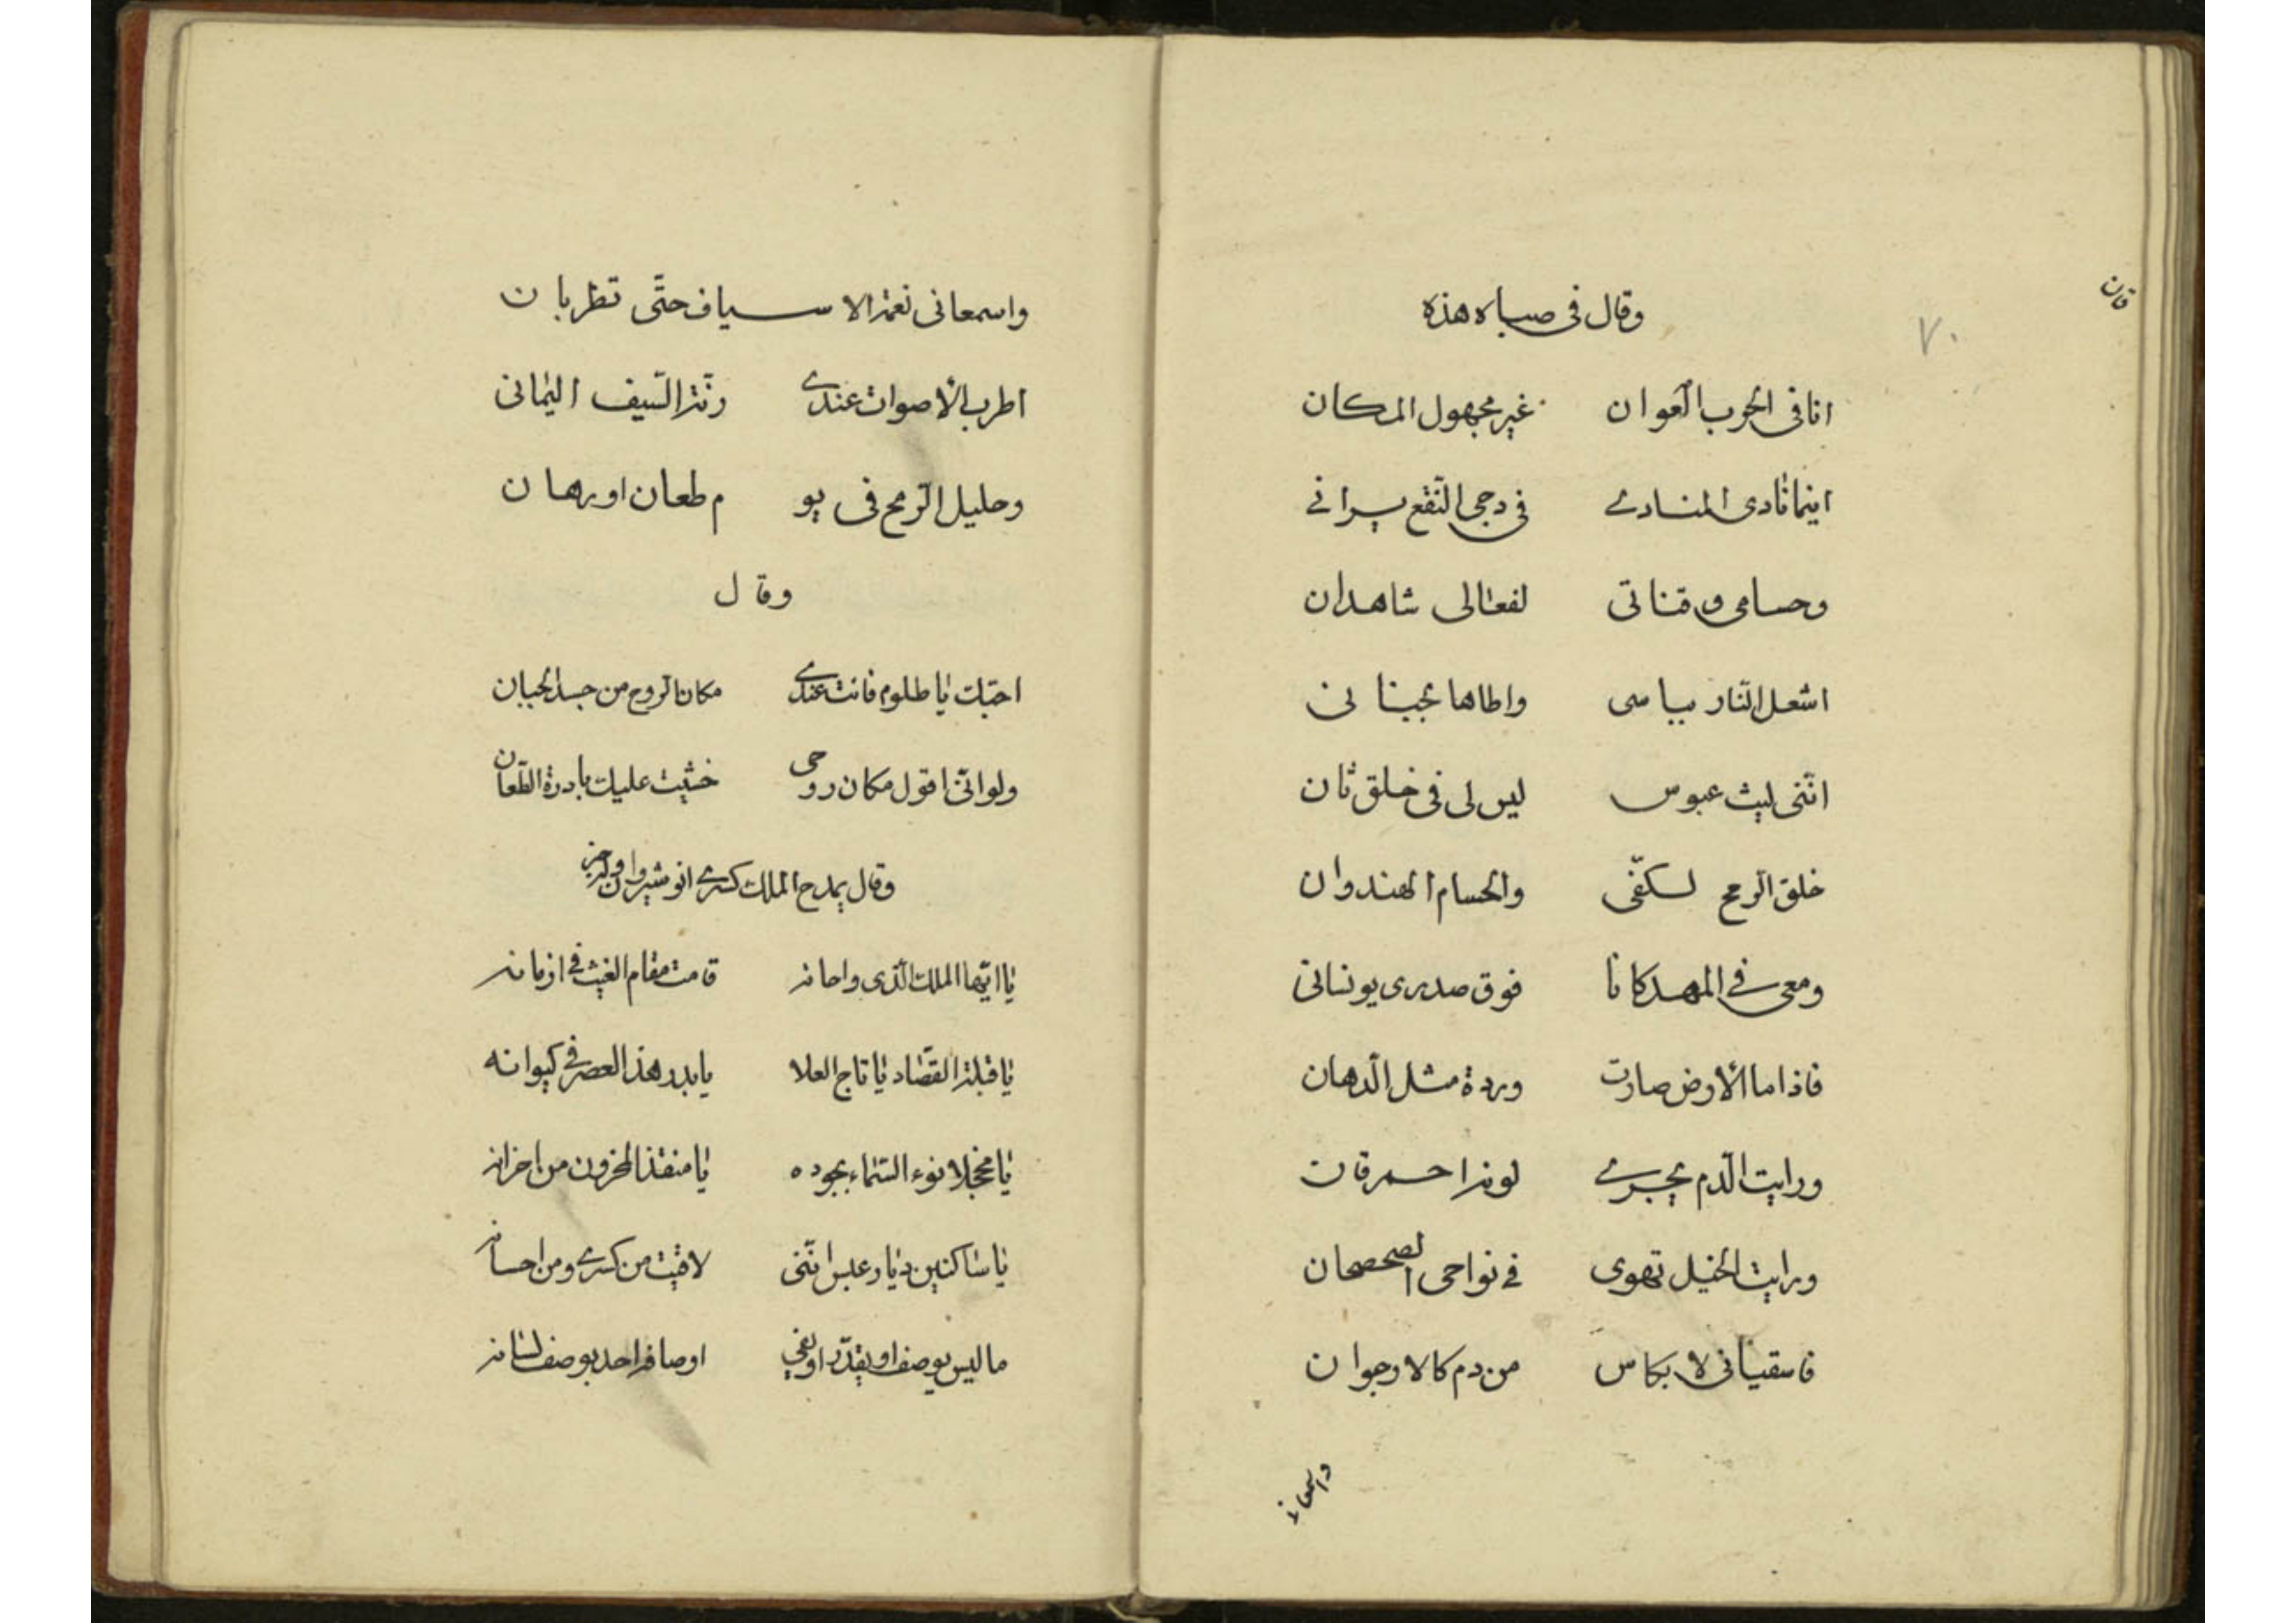 قان
٧٠
وقال فى صباه هذه
انا فى الحرب العوان غير مجهول المكان
اينما نادى المنادى فى دجى النقع يرانى
وحسامى وقناتى لفعالى شاهدان
اشعل النار بباسى واطاها بجنانى
اننى ليث عبوس ليس لى فى خلق ثان
خلق الرمح لكفى والحسام الهندوان
ومعى فى المهد كانا فوق صدرى يونسانى
فاذا ما الارض صارت وردة مثل الدهان
ورايت الدم يجرى لونه احمر قان
ورايت الخيل تهوى فى نواحى الصحصحان
فاسقيانى لا بكاس من دم كالارجوان
واسمعانى
واسمعانى نغمة الاسياف حتى تطربان
اطرب الاصوات عندى رنة السيف اليمانى
وصليل الرمح فى يو م طعان او رهان
وقال
احبك يا ظلوم فانت عندى مكان الروح من جسد الجبان
ولو انى اقول مكان روحى خشيت عليك بادرة الطعان
وقال يمدح الملك كسرى انوشيروان
يا ايها الملك الذى راحاته قامت مقام الغيث فى ازمانه
يا قبلة القصاد يا تاج العلا يا بدر هذا العصر فى كيوانه
يا مخجلا نوء السماء بجوده يا منقذ المحزون من احزانه
يا ساكنين ديار عبس اننى لاقيت من كسرى ومن احسانه
ما ليس يوصف او يقدر او يفى اوصافه احد بوصف لسانه